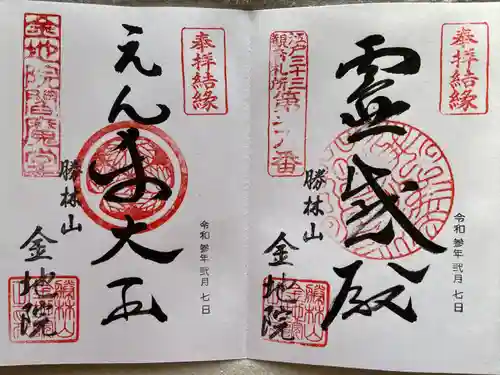 奉拝結縁
江戸三十三
観音札所第
霊感殿
勝林山
金地院
令和参年弐月七日
奉拝結縁
金地院閻魔堂
えんま大王
勝林山
金地院
令和参年弐月七日